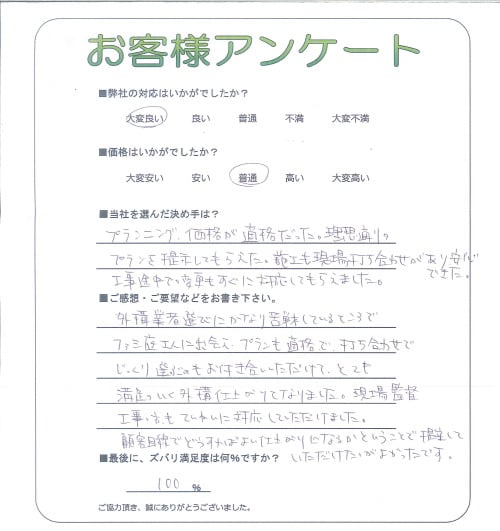 お客様アンケート
■弊社の対応はいかがでしたか？
大変良い 良い 普通 不満 大変不満
■価格はいかがでしたか？
大変安い 安い 普通 高い 大変高い
■当社を選んだ決め手は？
プランニング、価格が適格だった。理想通りの
プランを提示してもらえた。施工も現場打ち合わせがあり安心
できた。
工事途中での変更もすぐに対応してもらえました。
■ご感想・ご要望などをお書き下さい。
外構業者選びにかなり苦戦しているところで
ファミ庭さんに出会え、プランも適格で、打ち合わせで
じっくり選ぶのもお付き合いいただけて、とても
満足のいく外構仕上がりになりました。現場監督
工事の方もていねいに対応していただけました。
顧客目線でどうすればよい仕上がりになるかということで提案して
いただけたのがよかったです。
■最後に、ズバリ満足度は何％ですか？
100 %
ご協力頂き、誠にありがとうございました。